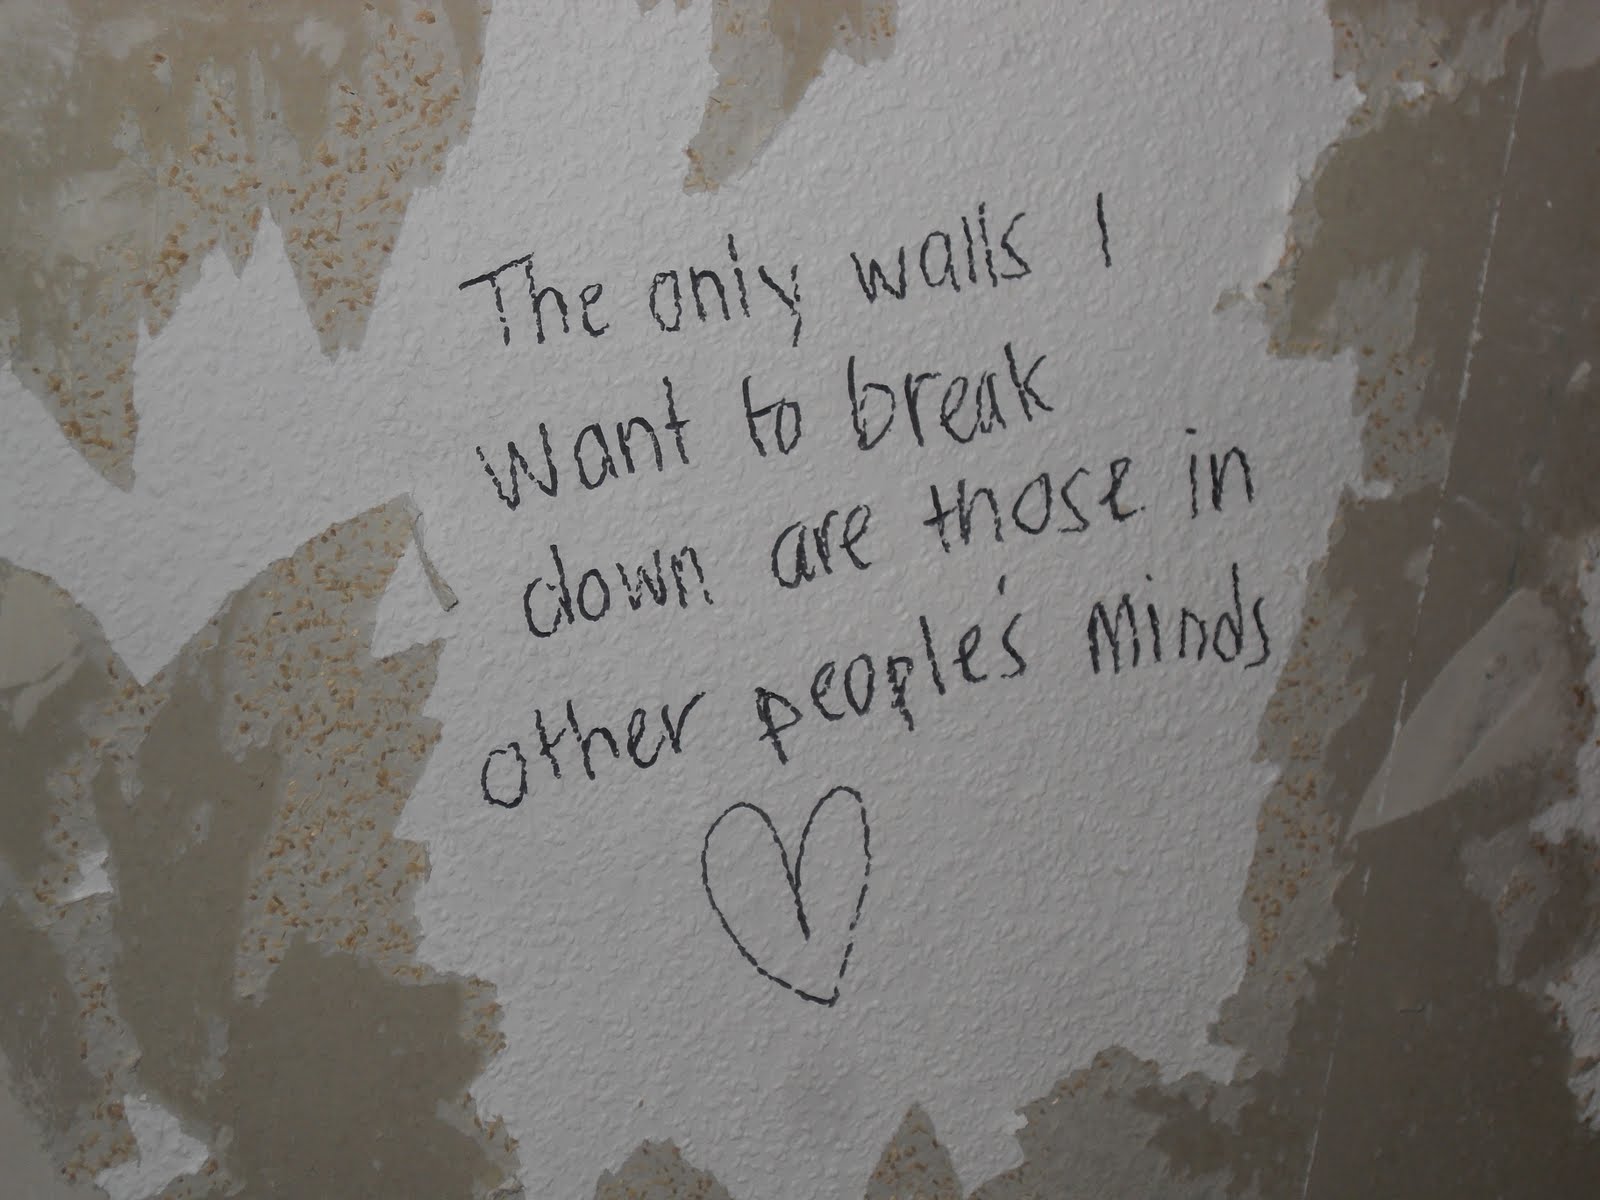 The only walls I
want to break
down are those in
other people's minds